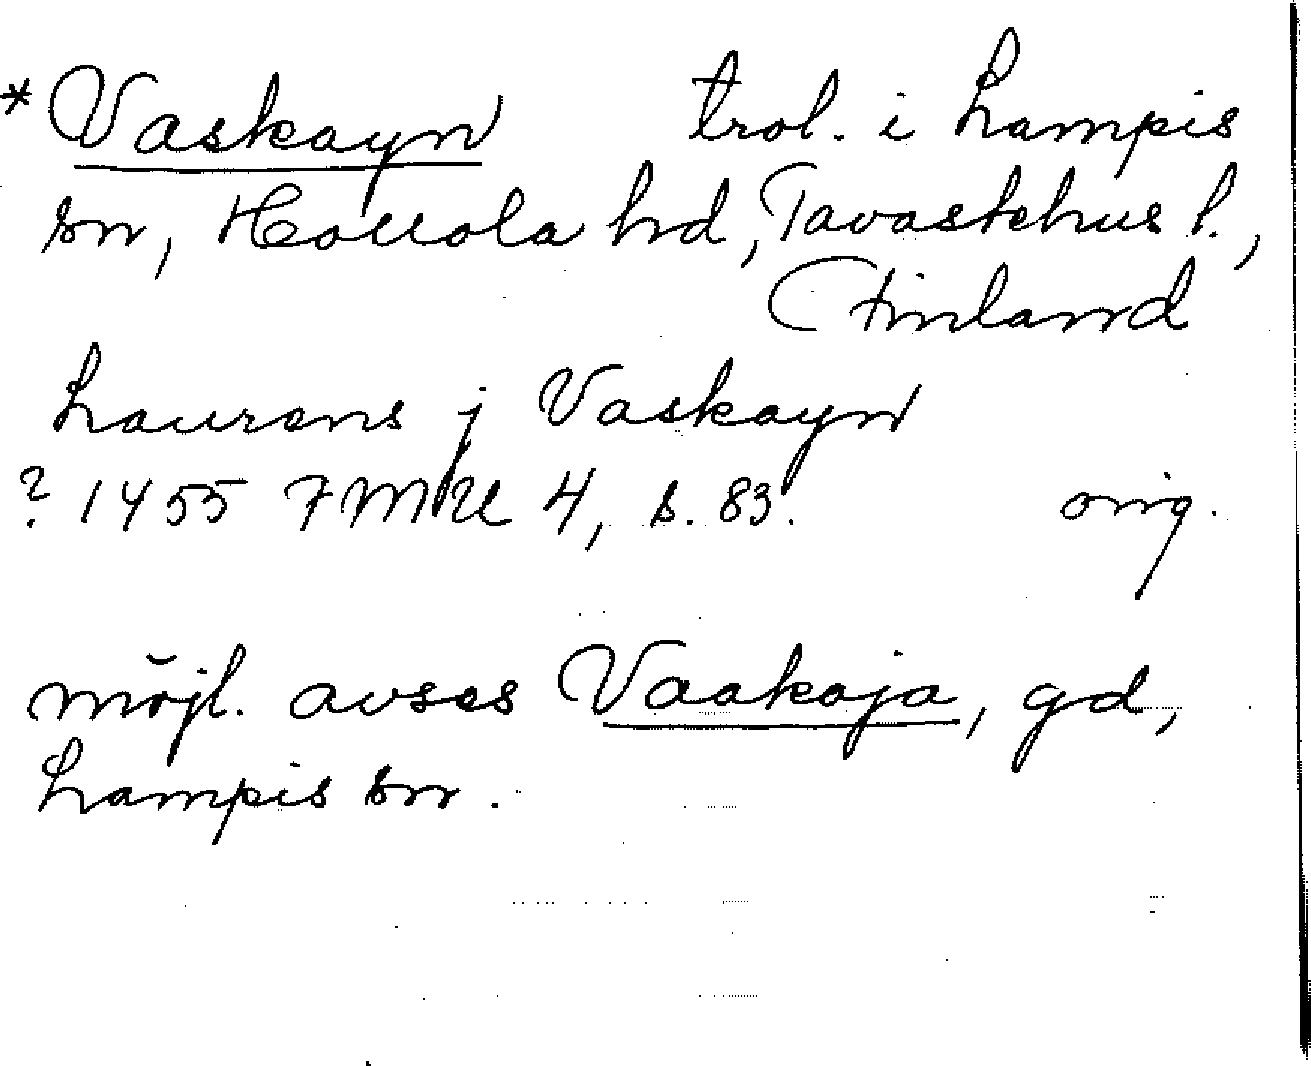 * Vaskayn trol. i Lampis
sn, Hollola hd, Tavastehus l.,
Finland
Laurens j Vaskayn
? 1455 FMU 4, s. 83. orig.
möjl. avses Vaakoja, gd,
Lampis sn.